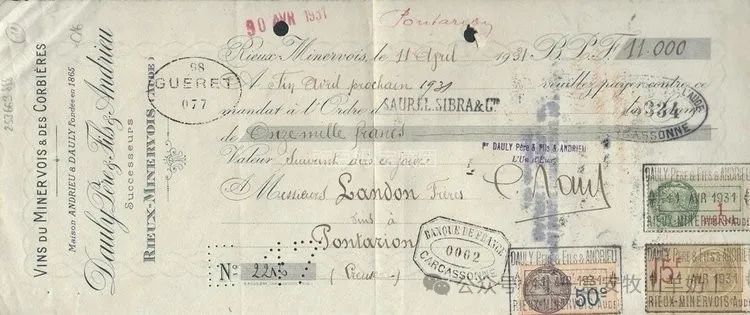 30 AVR 1931
Pontarion
Rieux-Minervois, le 11 April 1931 B.P.F. 11.000
A Fin Avril prochain 1931 veuillez payer contre ce
mandat à l'Ordre de SAUREL, SIBRA & Cie
de Onze mille francs
Valeur suivant avis ce jour
A Messieurs Landon Frères
vins à
Pontarion
(Creuse)
No 2246
VINS DU MINERVOIS & DES CORBIÈRES
Maison ANDRIEU & DAULY Fondée en 1865
Dauly Père & Fils & Andrieu
Successeurs
RIEUX-MINERVOIS (AUDE)
98
GUERET
077
334
L'AUDE
CARCASSONNE
Pr DAULY Père & Fils & ANDRIEU
L'Un d'Eux
BANQUE DE FRANCE
0062
CARCASSONNE
DAULY Père & Fils & ANDRIEU
11 AVR 1931
RIEUX-MINERVOIS (Aude)
DAULY Père & Fils & ANDRIEU
50c
RIEUX-MINERVOIS (Aude)
DAULY Père & Fils & ANDRIEU
5F
1931
RIEUX-MINERVOIS (Aude)
公众号